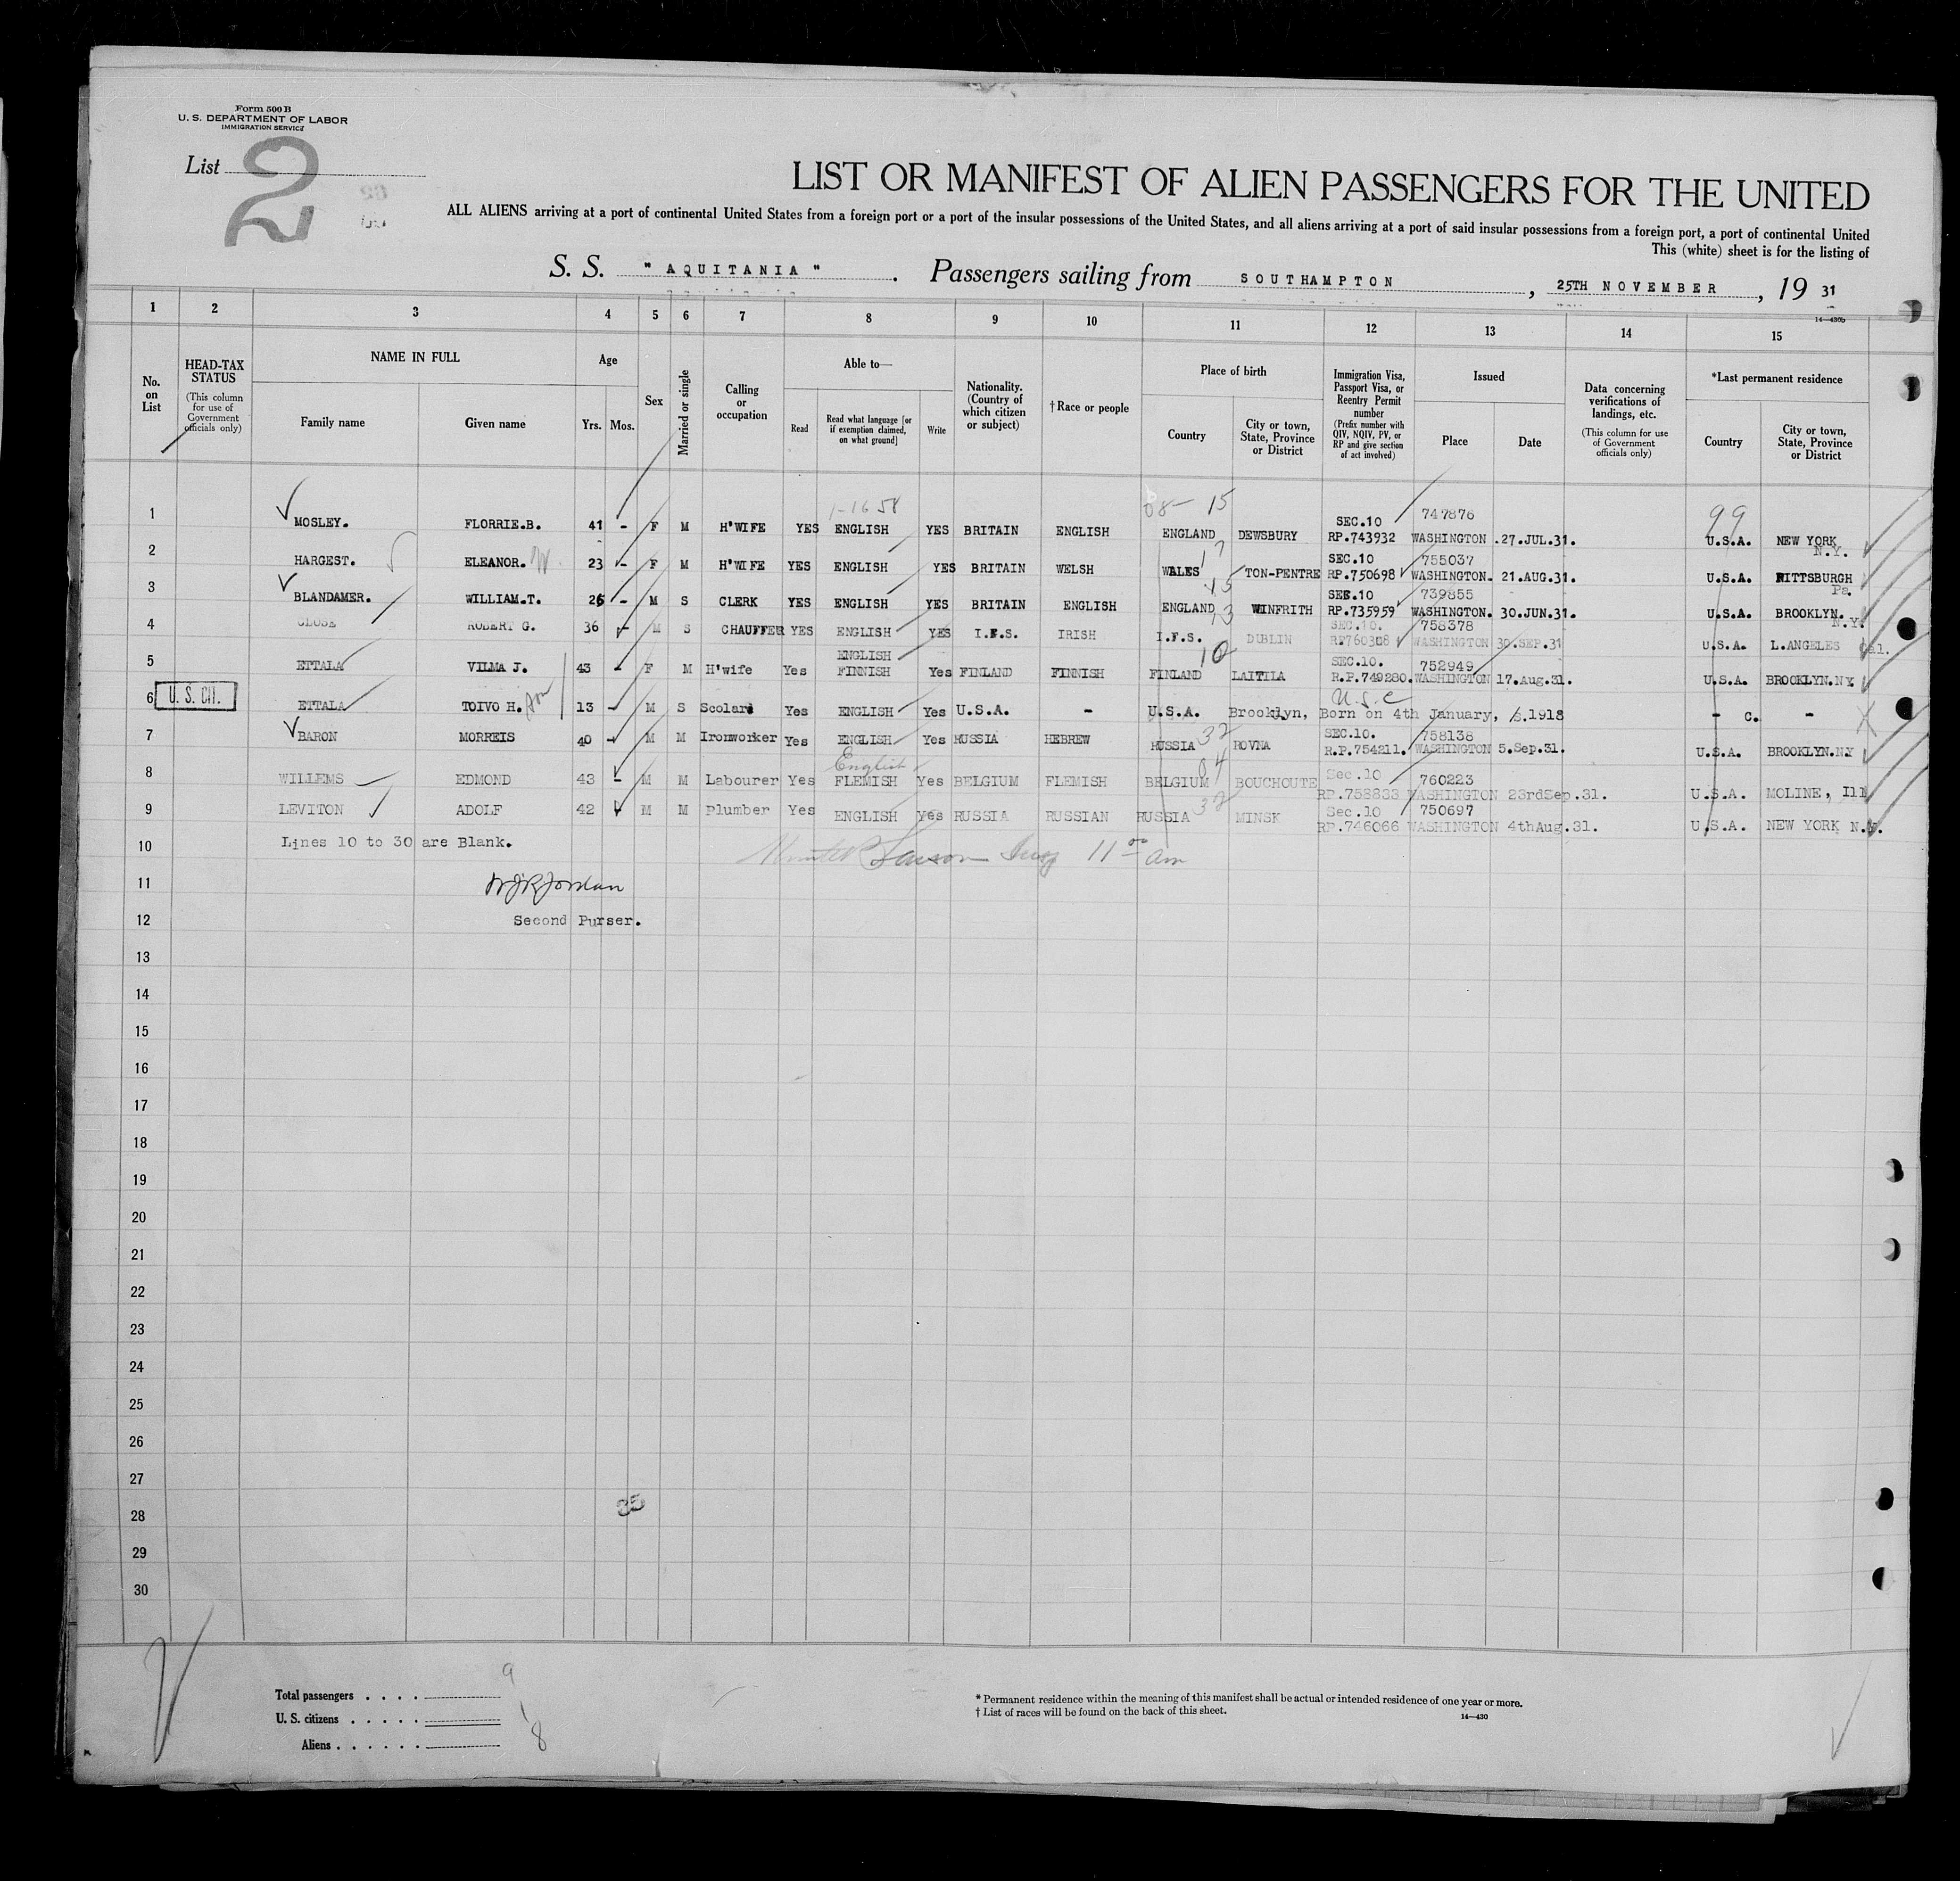 Form 500 B
U. S. DEPARTMENT OF LABOR
IMMIGRATION SERVICE
List 2
LIST OR MANIFEST OF ALIEN PASSENGERS FOR THE UNITED
ALL ALIENS arriving at a port of continental United States from a foreign port or a port of the insular possessions of the United States, and all aliens arriving at a port of said insular possessions from a foreign port, a port of continental United
This (white) sheet is for the listing of
S. S. " AQUITANIA " . Passengers sailing from SOUTHAMPTON , 25TH NOVEMBER , 19 31
14—430b
1 2 3 4 5 6 7 8 9 10 11 12 13 14 15
No. on List
HEAD-TAX STATUS (This column for use of Government officials only)
NAME IN FULL
Family name
Given name
Age
Yrs. Mos.
Sex
Married or single
Calling or occupation
Able to—
Read
Read what language [or if exemption claimed, on what ground]
Write
Nationality. (Country of which citizen or subject)
†Race or people
Place of birth
Country
City or town, State, Province or District
Immigration Visa, Passport Visa, or Reentry Permit number (Prefix number with QIV, NQIV, PV, or RP and give section of act involved)
Issued
Place
Date
Data concerning verifications of landings, etc. (This column for use of Government officials only)
*Last permanent residence
Country
City or town, State, Province or District
1-16 58 15 747876 99
1 MOSLEY. FLORRIE.B. 41 - F M H'WIFE YES ENGLISH YES BRITAIN ENGLISH ENGLAND DEWSBURY SEC.10 RP.743932 WASHINGTON .27.JUL.31. U.S.A. NEW YORK N.Y.
17 755037
2 HARGEST. ELEANOR. 23 - F M H'WIFE YES ENGLISH YES BRITAIN WELSH WALES TON-PENTRE SEC.10 RP.750698 WASHINGTON. 21.AUG.31. U.S.A. PITTSBURGH Pa.
15 739855
3 BLANDAMER. WILLIAM.T. 26 - M S CLERK YES ENGLISH YES BRITAIN ENGLISH ENGLAND WINFRITH SEC.10 RP.735959 WASHINGTON. 30.JUN.31. U.S.A. BROOKLYN. N.Y.
13 758378
4 CLOSE ROBERT G. 36 - M S CHAUFFER YES ENGLISH YES I.F.S. IRISH I.F.S. DUBLIN SEC.10. RP760308 WASHINGTON 30.SEP.31 U.S.A. L.ANGELES Cal.
10 752949
5 ETTALA VILMA J. 43 - F M H'wife Yes ENGLISH FINNISH Yes FINLAND FINNISH FINLAND LAITILA SEC.10. R.P.749280. WASHINGTON 17.Aug.31. U.S.A. BROOKLYN.NY
U.S.C
6 U. S. CIT. ETTALA TOIVO H. son 13 - M S Scolar Yes ENGLISH Yes U.S.A. - U.S.A. Brooklyn, Born on 4th January, 1918 - C. -
32 758138
7 BARON MORREIS 40 - M M Ironworker Yes ENGLISH Yes RUSSIA HEBREW RUSSIA ROVNA SEC.10. R.P.754211. WASHINGTON 5.Sep.31. U.S.A. BROOKLYN.NY
English 04 760223
8 WILLEMS EDMOND 43 - M M Labourer Yes FLEMISH Yes BELGIUM FLEMISH BELGIUM BOUCHOUTE Sec.10 RP.758833 WASHINGTON 23rdSep.31. U.S.A. MOLINE, Ill
32 750697
9 LEVITON ADOLF 42 M M Plumber Yes ENGLISH Yes RUSSIA RUSSIAN RUSSIA MINSK Sec.10 RP.746066 WASHINGTON 4thAug.31. U.S.A. NEW YORK N.Y.
10 Lines 10 to 30 are Blank. 11 00 am
11 Jordan
12 Second Purser.
13
14
15
16
17
18
19
20
21
22
23
24
25
26
27
28 35
29
30
Total passengers . . . . 9
U. S. citizens . . . . . 1
Aliens . . . . . . 8
* Permanent residence within the meaning of this manifest shall be actual or intended residence of one year or more.
† List of races will be found on the back of this sheet.
14—430